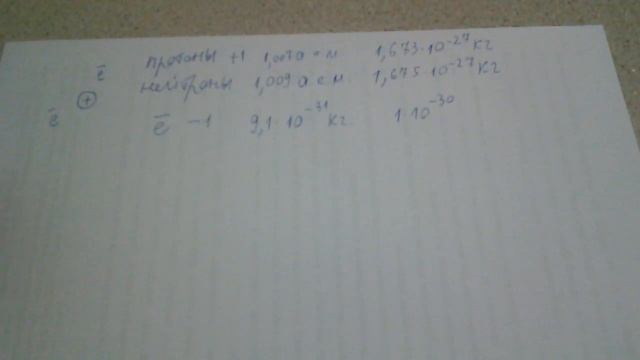 протоны +1 1,007 а е м 1,673·10⁻²⁷ кг
ē нейтроны 1,009 а е м 1,675·10⁻²⁷ кг
+
ē ē −1 9,1·10⁻³¹ кг 1·10⁻³⁰